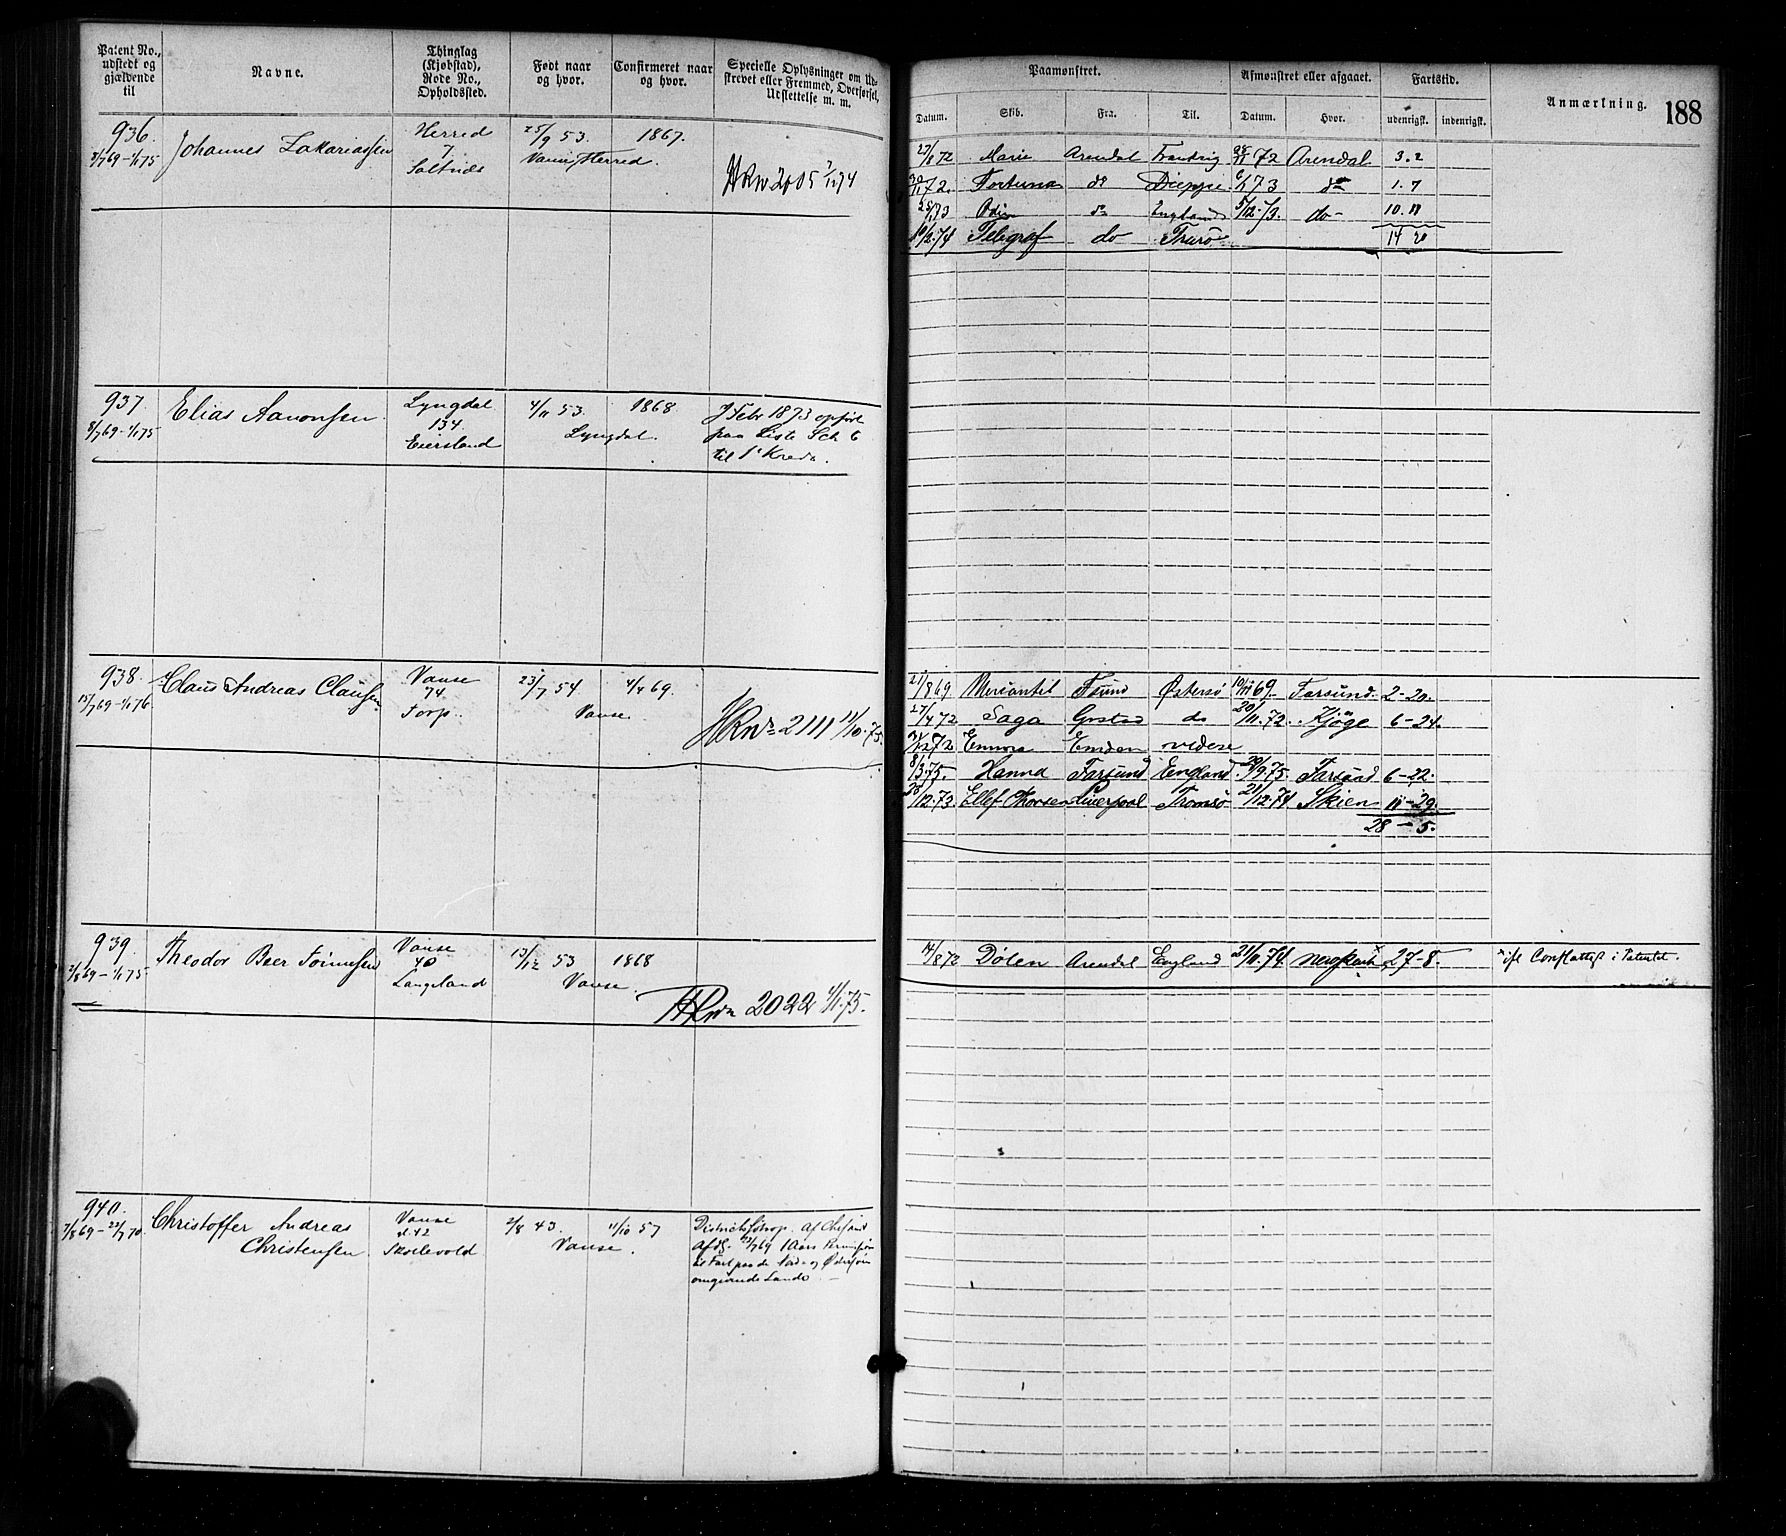 Patent No.,
udstedt og
gjældende
til
Navne.
Thinglag
(Kjøbstad),
Rode No.,
Opholdssted.
Født naar
og hvor.
Confirmeret naar
og hvor.
Specielle Oplysninger om Ud-
skrevet eller Fremmed, Overførsel,
Udslettelse m. m.
936.
8/7 69 - 1/1 75
Johannes Zakariassen
Herred
7.
25/9 53
Herred.
1867.
HRno 2005 7/12 74
937.
8/7 69 - 1/1 75
Elias Aanonssen
Lyngdal
134.
Eiersland
4/11 53.
1868.
Lyngdal.
Febr 1873 opført
paa Liste
til 1ste Kreds.
938.
15/7 69 - 1/1 76
Claus Andreas Claussen
Vanse
74.
Torp.
23/7 54
4/4 69.
Vanse
HRnr 2111 11/10.75.
939
2/8 69 - 1/1 75
Theodor Beer Tønnesen
Vanse
40
Langeland
13/12 53
1868
Vanse.
HRno 2022 4/1.75.
940.
3/8 69 - 22/7 70.
Christoffer Andreas
Christensen
Vanse
42
Skollevold
2/8 43.
11/10 57
Vanse.
af
22/7 69 1 Aars Permission
til Fart paa de Nord- og Østersøen
omgivende Lande
Paamønstret.
Afmønstret eller afgaaet.
Fartstid.
Anmærkning.
188
Datum.
Skib.
Fra.
Til.
Datum.
Hvor.
udenrigsk.
indenrigsk.
27/8 72 Marie Arendal Frankrig 28/11 72 Arendal 3. 2
Fortuna do Dieppe 73 do 1. 7
73 Odin do England 5/12.73. do- 10. 11
10/2.74 Telegraf do 14 20
21/8 69 Mercantil Fsund Østersø 10/11 69. Farsund. 2-20.
27/4 72 Saga Grstad do 20/11.72. Kjøge 6-24.
72 Emden videre
8/3.75. Hanna Farsund England 9.75. Farsund 6-22.
28/12.73. Ellef Thorsen Liverpool Tromsø 21/12.74 Skien 11-29.
28-5.
14/8 72 Dølen Arendal England 21/11.74. 27-8.
ifl. i Patentet.